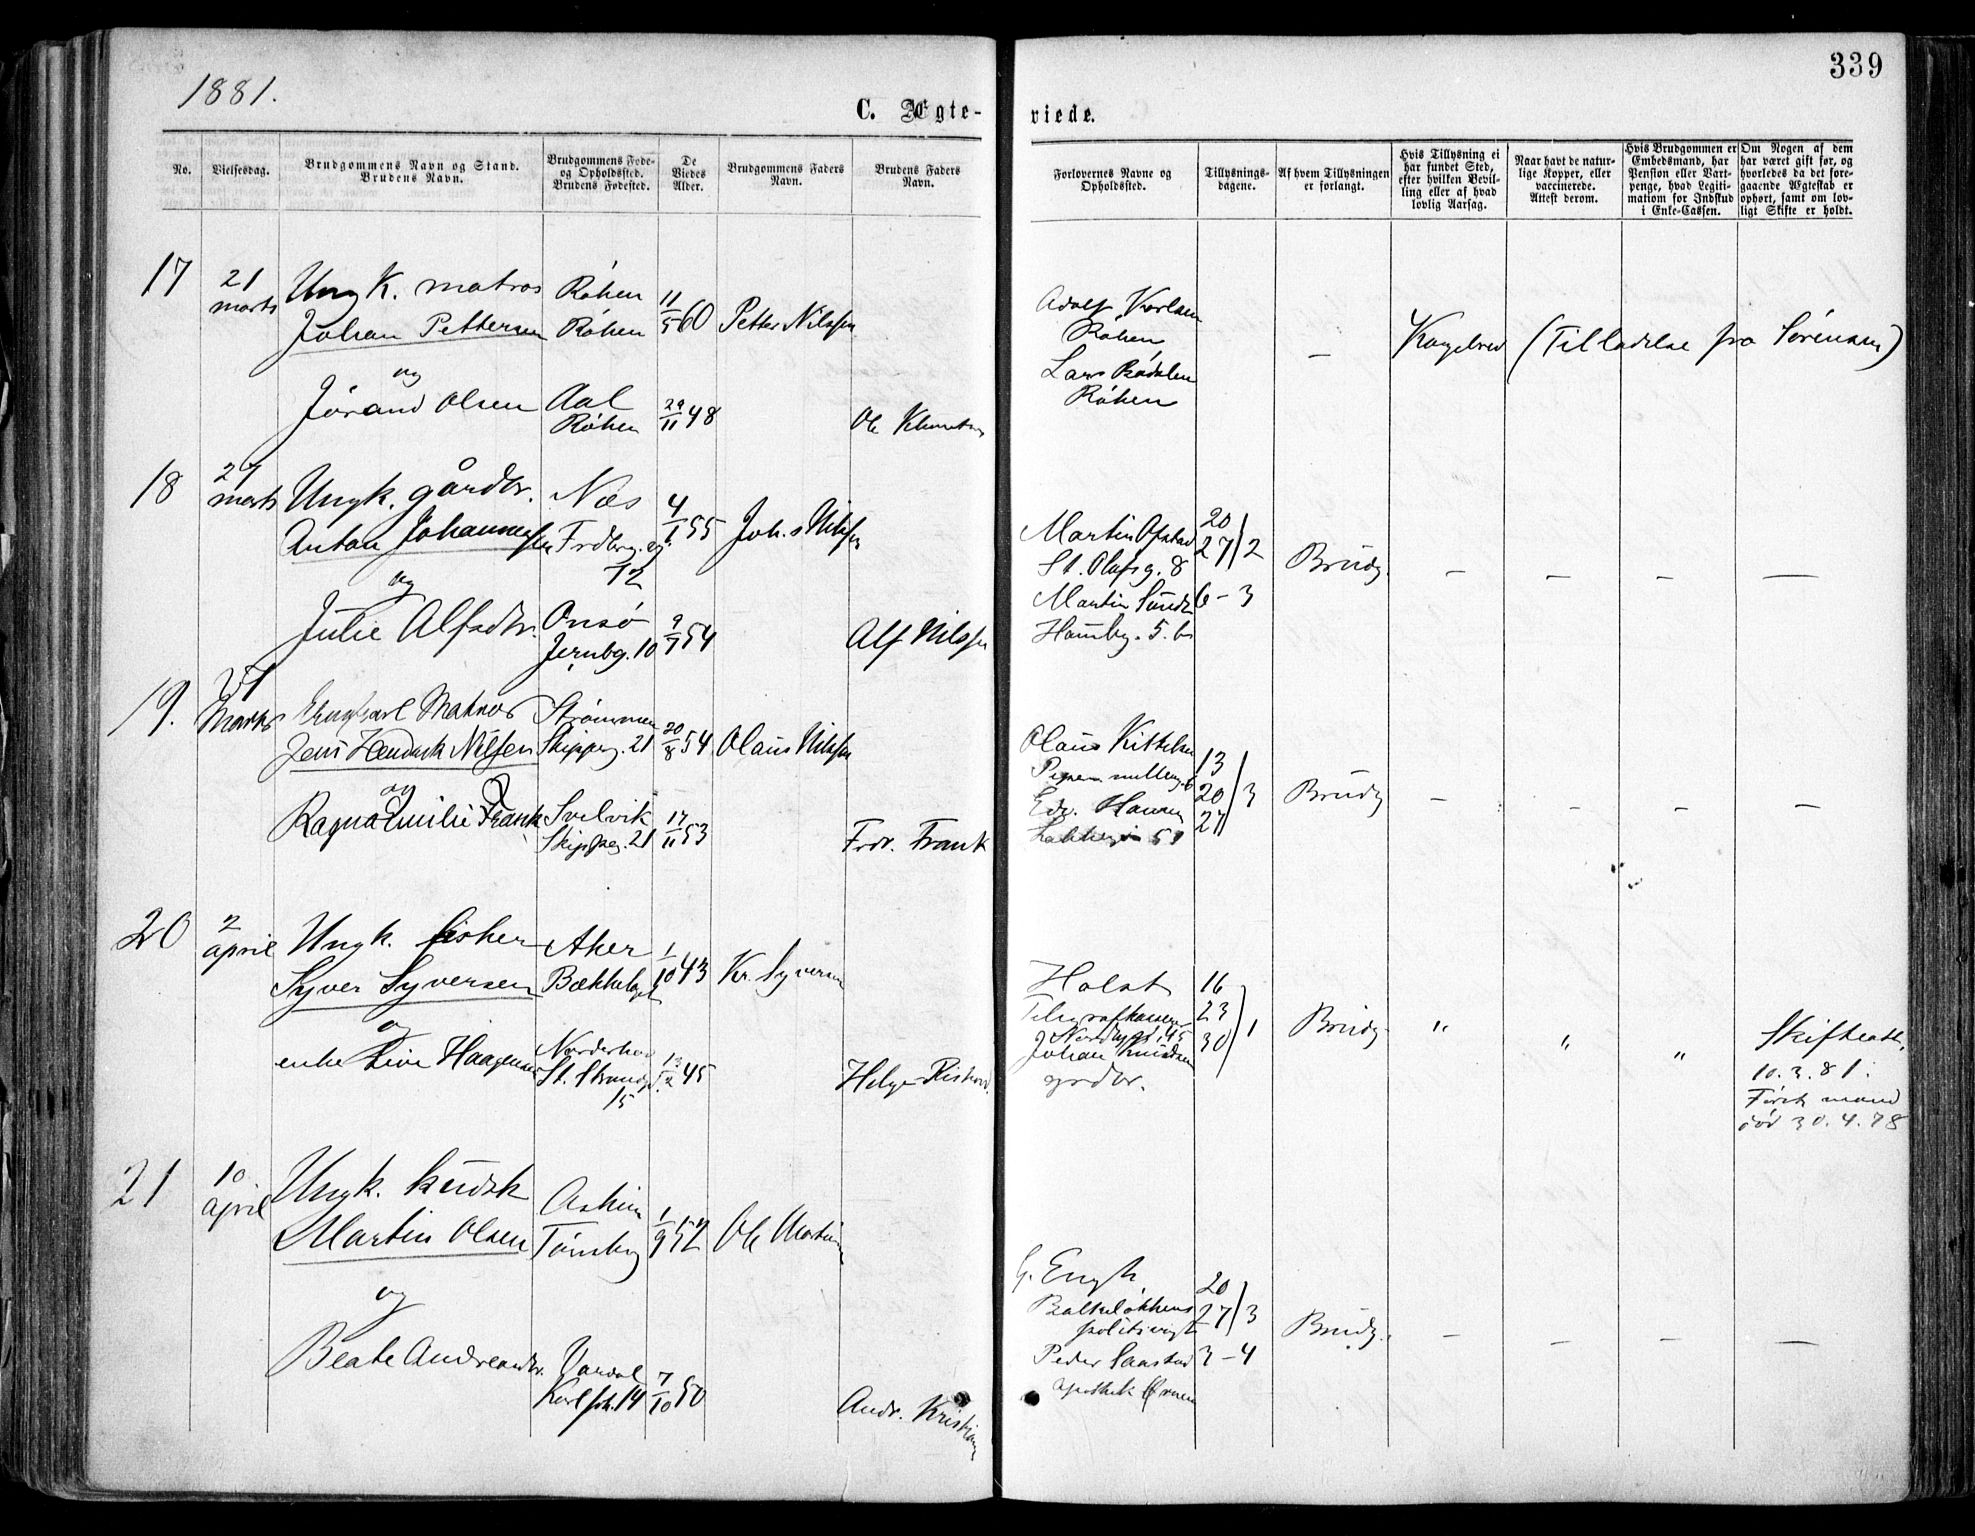 339
1881.
C. Ægte-
viede.
No.
Vielsesdag.
Brudgommens Navn og Stand.
Brudens Navn.
Brudgommens Føde-
og Opholdssted.
Brudens Fødested.
De
Viedes
Alder.
Brudgommens Faders
Navn.
Brudens Faders
Navn.
Forlovernes Navne og
Opholdssted.
Tillysnings-
dagene.
Af hvem Tillysningen
er forlangt.
Hvis Tillysning ei
har fundet Sted,
efter hvilken Bevil-
ling eller af hvad
lovlig Aarsag.
Naar havt de natur-
lige Kopper, eller
vaccinerede.
Attest derom.
Hvis Brudgommen er
Embedsmand, har
Pension eller Vart-
penge, hvad Legiti-
mation for Indskud
i Enke-Cassen.
Om Nogen af dem
har været gift før, og
hvorledes da det fore-
gaaende Ægteskab er
ophørt, samt om lov-
ligt Skifte er holdt.
17
21
marts
Ungk. matros
Johan Pettersen
og
Jørand Olsen
Røken
Røken
Aal
Røken
11/5 60
29/11 48
Petter Nilssen
Ole
Adolf
Røken
Lars Bødalen
Røken
—
(Tilladelse fra Sørensen)
18
27
marts
Ungk. gårdbr.
Anton Johannessen
og
Julie Alfsdtr.
Næs
12
Onsø
Jernbg. 10
4/1 55
9/7 54
Joh.s Nilssen
Alf Nilssen
Martin
St. Olafsg. 8
Martin
Hausbg. 5. b
20
27/2
6 - 3
Brudg.
— — — —
19.
27
Marts
Ungkarl Matros
Jens Hendrick Nilsen
og
Ragna Emilie Frank
Strømmen
Skipperg. 21
Svelvik
Skipperg. 21
20/8 54
17/11 53
Olaus Nilssen
Fredr. Frank
Olaus Kittelsen
Edv. Hansen
13
20/3
27
Brudg
— — — —
20
2
april
Ungk. fisker
Syver Syversen
og
enke Live Haagensen
Aker
Bækkelaget
Norderhov
St. Strandg.
15
1/10 43
13/2 45
Kr. Syversen
Helge
Holst
Johan Knudsen
grdbr.
16
23
30/1
Brudg.
" " "
Skifteatt.
10. 3. 81.
Første mand
død 30. 4. 78
21
10
april
Ungk. kudsk
Martin Olsen
og
Beate Andreasdtr.
Askim
Tønsbg
Vardal
Karl Joh. 14
1/9 52
7/10 50
Ole Martinsen
Andr. Kristians
G. Engh
politivagt
Peder Saastad
apothek Ørnen
20
27/3
3 - 4
Brudg.
— — — —